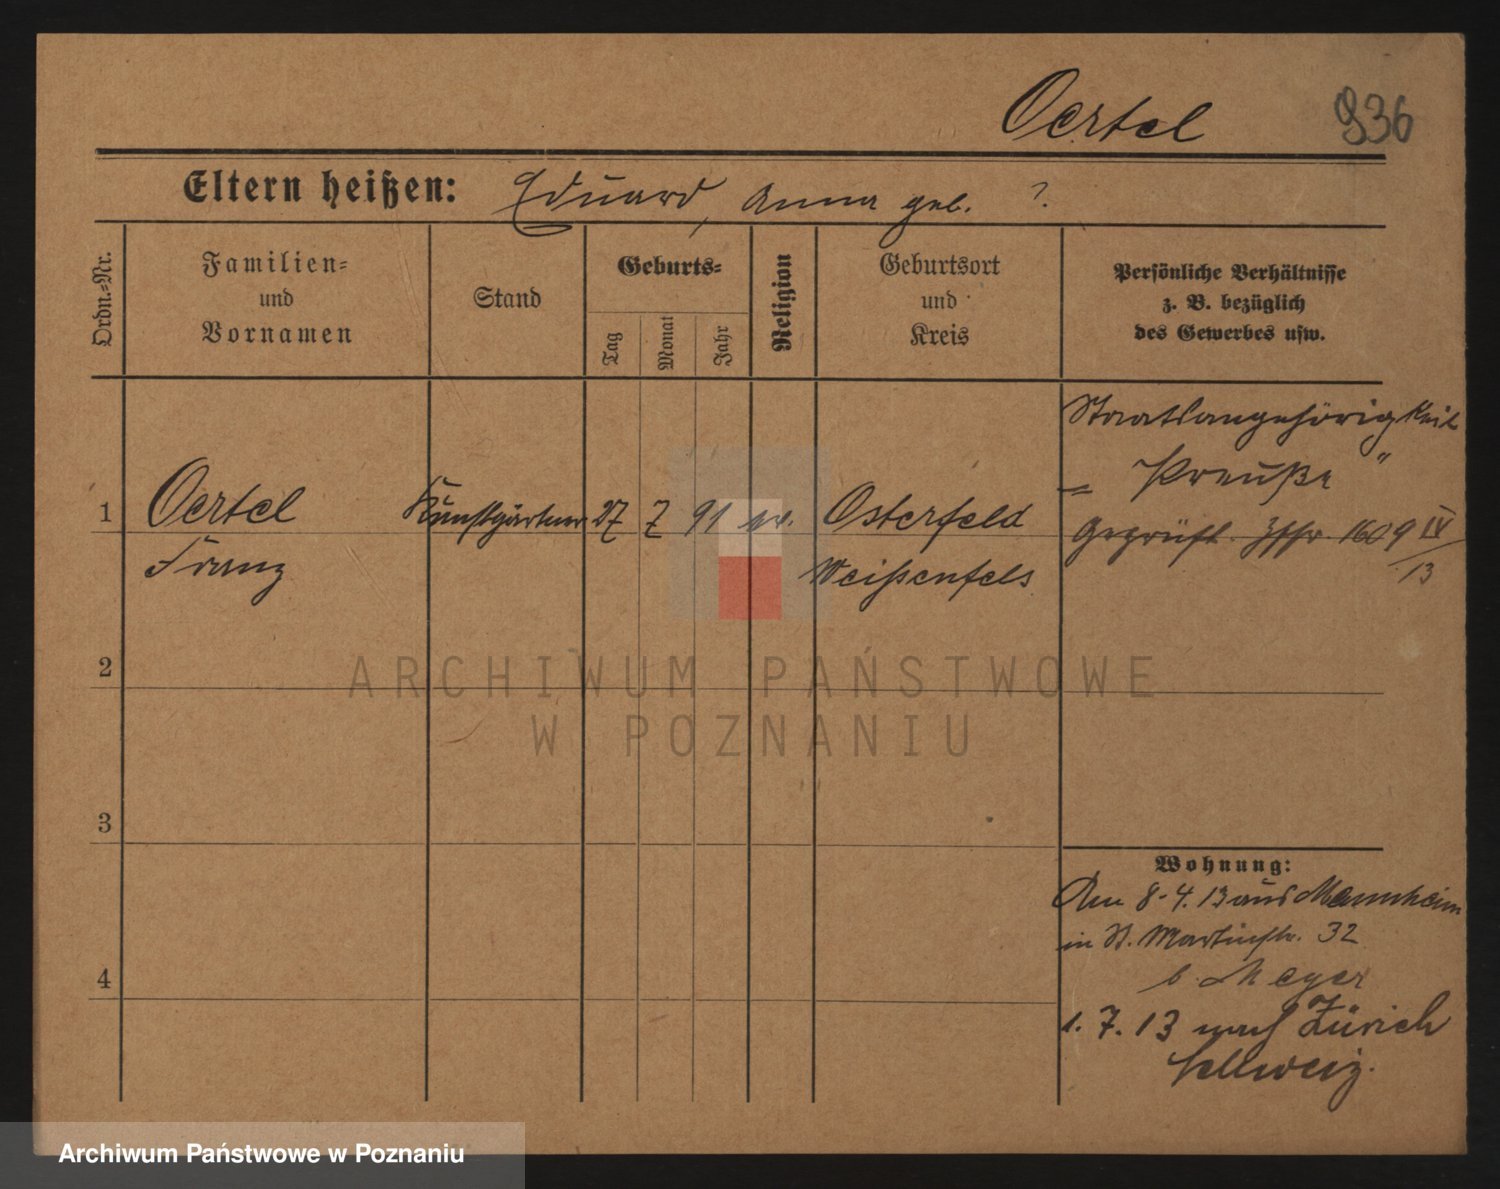 Oertel 936
Eltern heißen: Eduard, Anna geb. ?
Ordn.-Nr.
Familien-
und
Vornamen
Stand
Geburts-
Tag
Monat
Jahr
Religion
Geburtsort
und
Kreis
Persönliche Verhältnisse
z. B. bezüglich
des Gewerbes usw.
Staatsangehörigkeit
„ Preuße "
1 Oertel Kunstgärtner 27 7 91 ev. Osterfeld
Geprüft 1609 IV/13
Franz Weißenfels
2
ARCHIWUM PAŃSTWOWE
W POZNANIU
3
Wohnung:
Am 8.4.13 aus Mannheim
in St. Martinstr. 32
b. Meyer
4
1.7.13 nach Zürich
Schweiz.
Archiwum Państwowe w Poznaniu